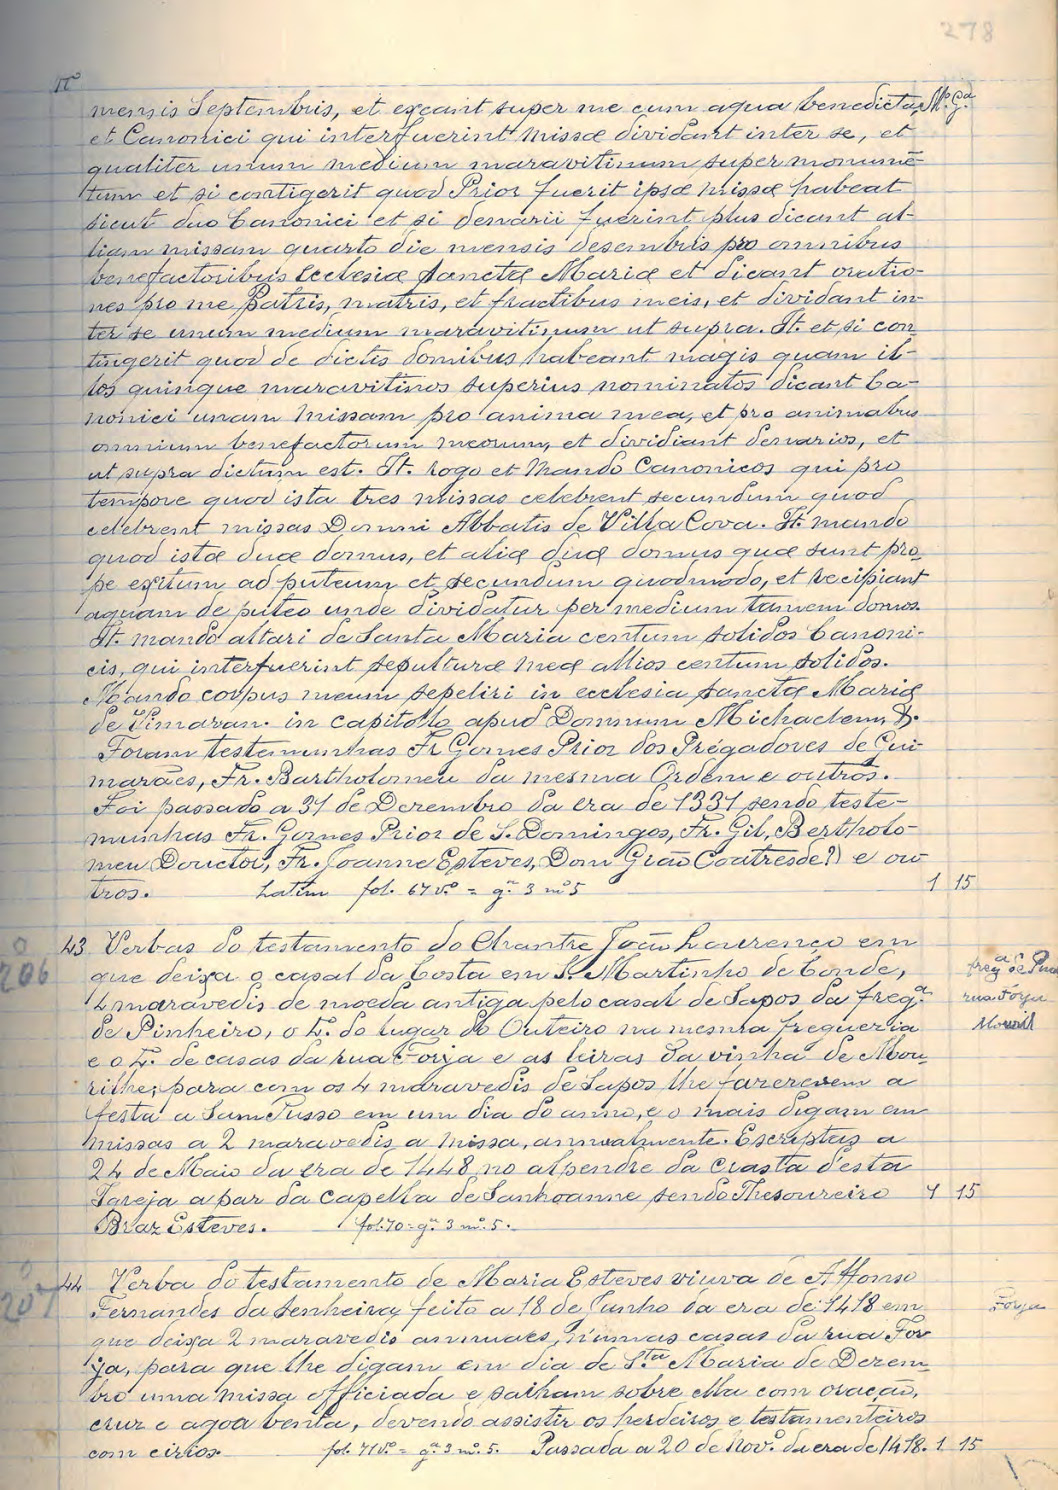 278
Nº Mº Gª
mensis Septembris, et exeant super me cum aqua benedicta,
et Canonici qui interfuerint missæ dividant inter se, et
qualiter unum medium maravitinum super monumē-
tum et si contigerit quod Prior fuerit ipsæ missæ habeat
sicut duo Canonici et si denarii fuerint plus dicant al-
liam missam quarto die mensis desembris pro omnibus
benefactoribus Ecclesiæ sanctæ Mariæ et dicant oratio-
nes pro me Patris, matris, et fractibus meis, et dividant in-
ter se unum medium maravitinum ut supra. It. et si con-
tingerit quod de dictis domibus habeant magis quam il-
los quinque maravitinos superius nominatos dicant Ca-
nonici unam missam pro anima mea, et pro animabus
omnium benefactorum meorum, et dividiant denarios, et
ut supra dictum est. It. rogo et mando Canonicos qui pro
tempore quod ista tres missas celebrent secundum quod
celebrent missas Domni Abbatis de Villa Cova. It. mando
quod istæ duæ domus, et aliæ duæ domus quæ sunt pro-
pe exitum ad puteum et secundum quodmodo, et recipiant
aquam de puteo unde dividatur per medium tamem domos.
It. mando altari de Santa Maria centum solidos Canoni-
cis, qui interfuerint sepulturæ meæ allios centum solidos.
Mando corpus meum sepeliri in ecclesia sanctæ Mariæ
de Vimaran. in capitollo apud Domnum Michaelem, &.
Foram testemunhas Fr. Gomes Prior dos Prégadores de Gui-
marães, Fr. Bartholomeu da mesma Ordem e outros.
Foi passado a 31 de Dezembro da era de 1331 sendo teste-
munhas Fr. Gomes Prior de S. Domingos, Fr. Gil, Bertholo-
meu Douctor, Fr. Joanne Esteves, Dom Grão Coatresde?) e ou-
tros. Latim fol. 67 vº = gª 3 mº 5 1 15
206
43 Verbas do testamento do Chantre João Lourenço em
que deixa o casal da Costa em S. Martinho de Conde,
4 maravedis de moeda antiga pelo casal de Sapos da fregª
de Pinheiro, o 4º do lugar do Outeiro na mesma freguezia
e o 4º de casas da rua Forja e as leiras da vinha de Mou-
rilhe; para com os 4 maravedis de Sapos lhe fazerem a
festa a Sam Tusso em um dia do anno, e o mais digam em
missas a 2 maravedis a missa, annualmente. Escriptas a
24 de Maio da era de 1448 no alpendre da Crasta d'esta
Igreja a par da capella de Sanhoanne sendo Thesoureiro 4 15
Braz Esteves. fol. 70 = gª 3 mº 5.
rua Forja
207
44 Verba do testamento de Maria Esteves viuva de Affonso
Fernandes da Senheira, feito a 18 de Junho da era de 1418 em
que deixa 2 maravedis annuaes, n'umas casas da rua For-
ja, para que lhe digam em dia de Stª Maria de Dezem-
bro uma missa officiada e saiham sobre ella com oração,
cruz e agoa benta, devendo assistir os herdeiros e testamenteiros
com cirios. fol. 71 vº = gª 3 mº 5. Passada a 20 de Novº da era de 1418. 1 15
Forja